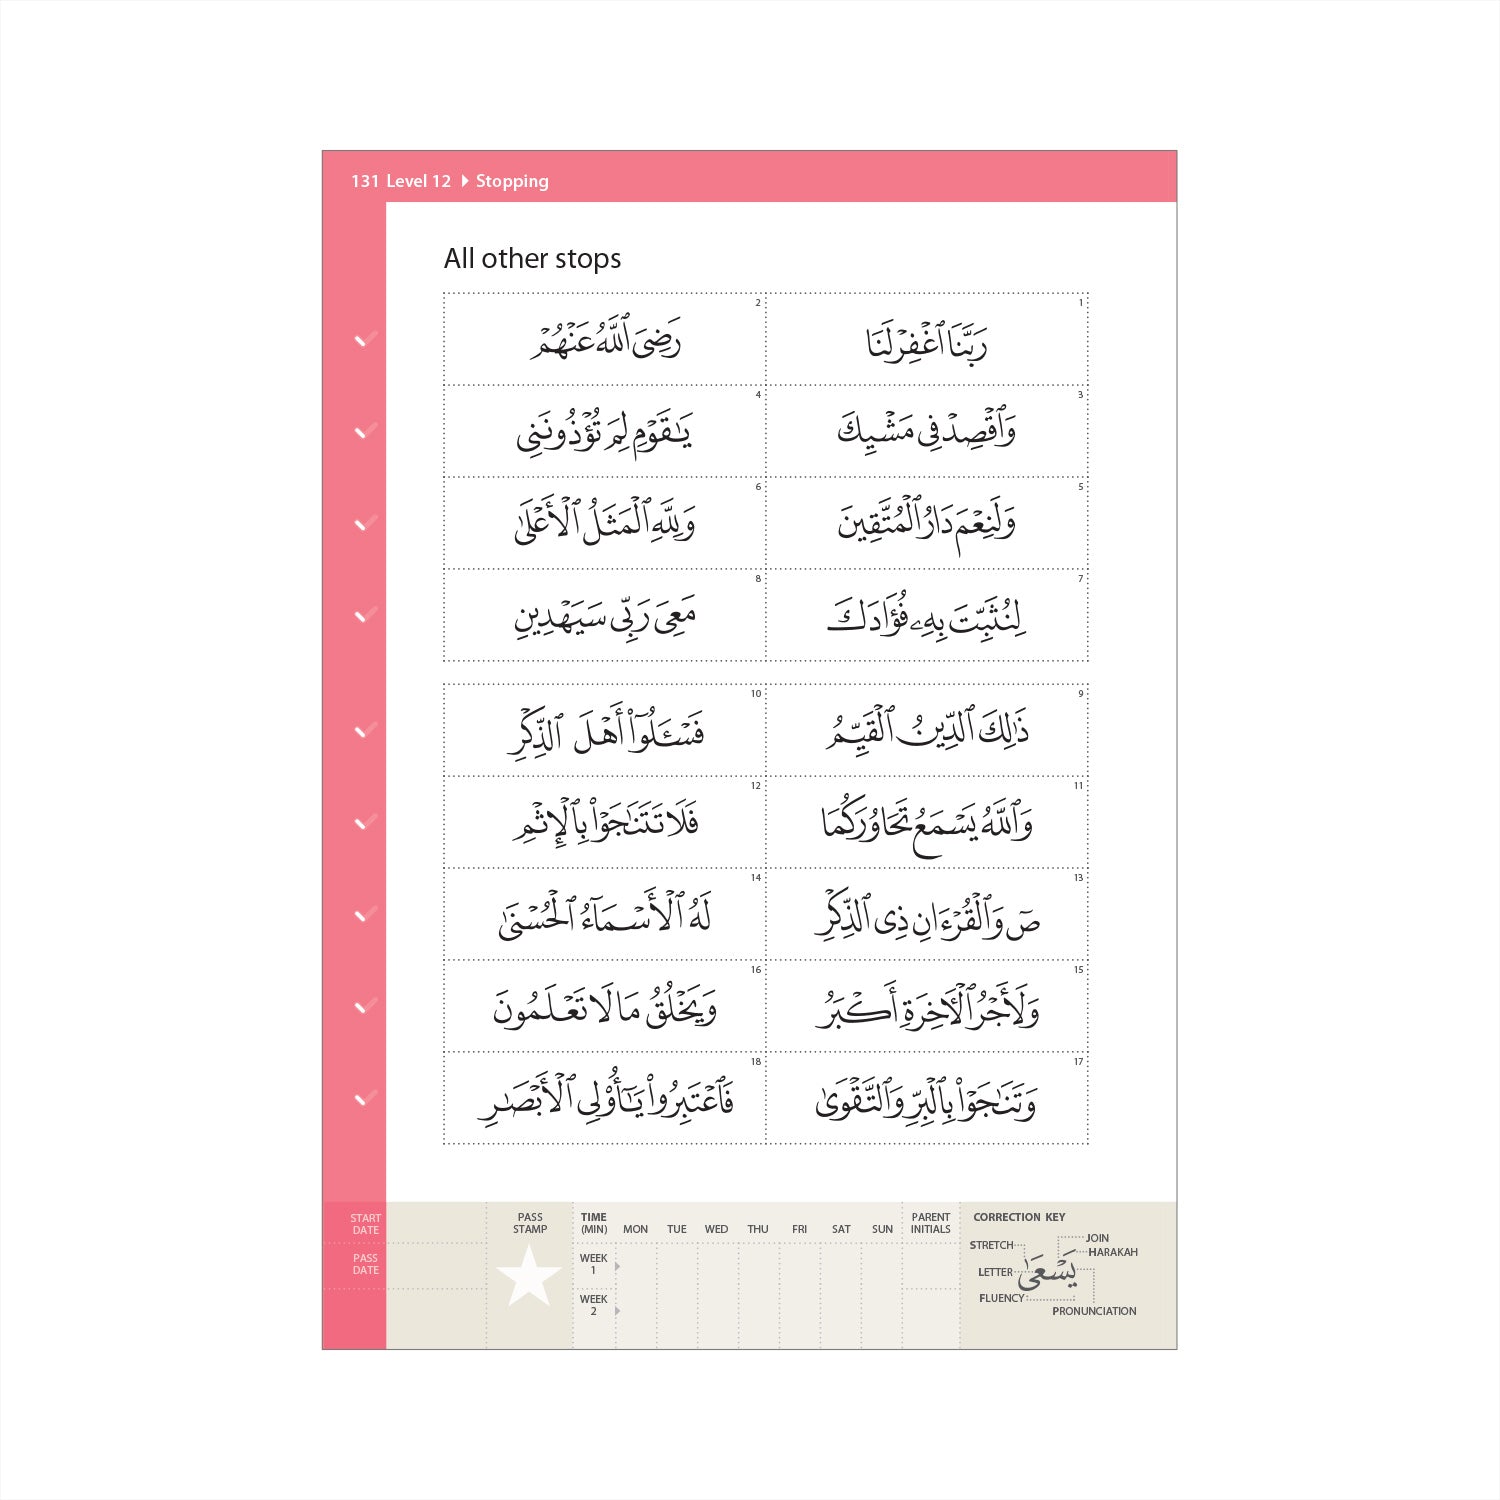 131 Level 12 ▸ Stopping
All other stops
1 رَبَّنَا ٱغۡفِرۡ لَنَا
2 رَضِىَ ٱللَّهُ عَنۡهُمۡ
3 وَٱقۡصِدۡ فِى مَشۡيِكَ
4 يَـٰقَوۡمِ لِمَ تُؤۡذُونَنِى
5 وَلَنِعۡمَ دَارُ ٱلۡمُتَّقِينَ
6 وَلِلَّهِ ٱلۡمَثَلُ ٱلۡأَعۡلَىٰ
7 لِنُثَبِّتَ بِهِۦ فُؤَادَكَ
8 مَعِىَ رَبِّى سَيَهۡدِينِ
9 ذَٰلِكَ ٱلدِّينُ ٱلۡقَيِّمُ
10 فَسۡـَٔلُوٓاْ أَهۡلَ ٱلذِّكۡرِ
11 وَٱللَّهُ يَسۡمَعُ تَحَاوُرَكُمَا
12 فَلَا تَتَنَـٰجَوۡاْ بِٱلۡإِثۡمِ
13 صٓ وَٱلۡقُرۡءَانِ ذِى ٱلذِّكۡرِ
14 لَهُ ٱلۡأَسۡمَآءُ ٱلۡحُسۡنَىٰ
15 وَلَأَجۡرُ ٱلۡأَخِرَةِ أَكۡبَرُ
16 وَيَخۡلُقُ مَا لَا تَعۡلَمُونَ
17 وَتَنَـٰجَوۡاْ بِٱلۡبِرِّ وَٱلتَّقۡوَىٰ
18 فَٱعۡتَبِرُواْ يَـٰٓأُوْلِى ٱلۡأَبۡصَـٰرِ
START DATE
PASS DATE
PASS STAMP
TIME (MIN) MON TUE WED THU FRI SAT SUN
WEEK 1
WEEK 2
PARENT INITIALS
CORRECTION KEY
STRETCH
JOIN
HARAKAH
LETTER
يَسۡعَىٰ
FLUENCY
PRONUNCIATION